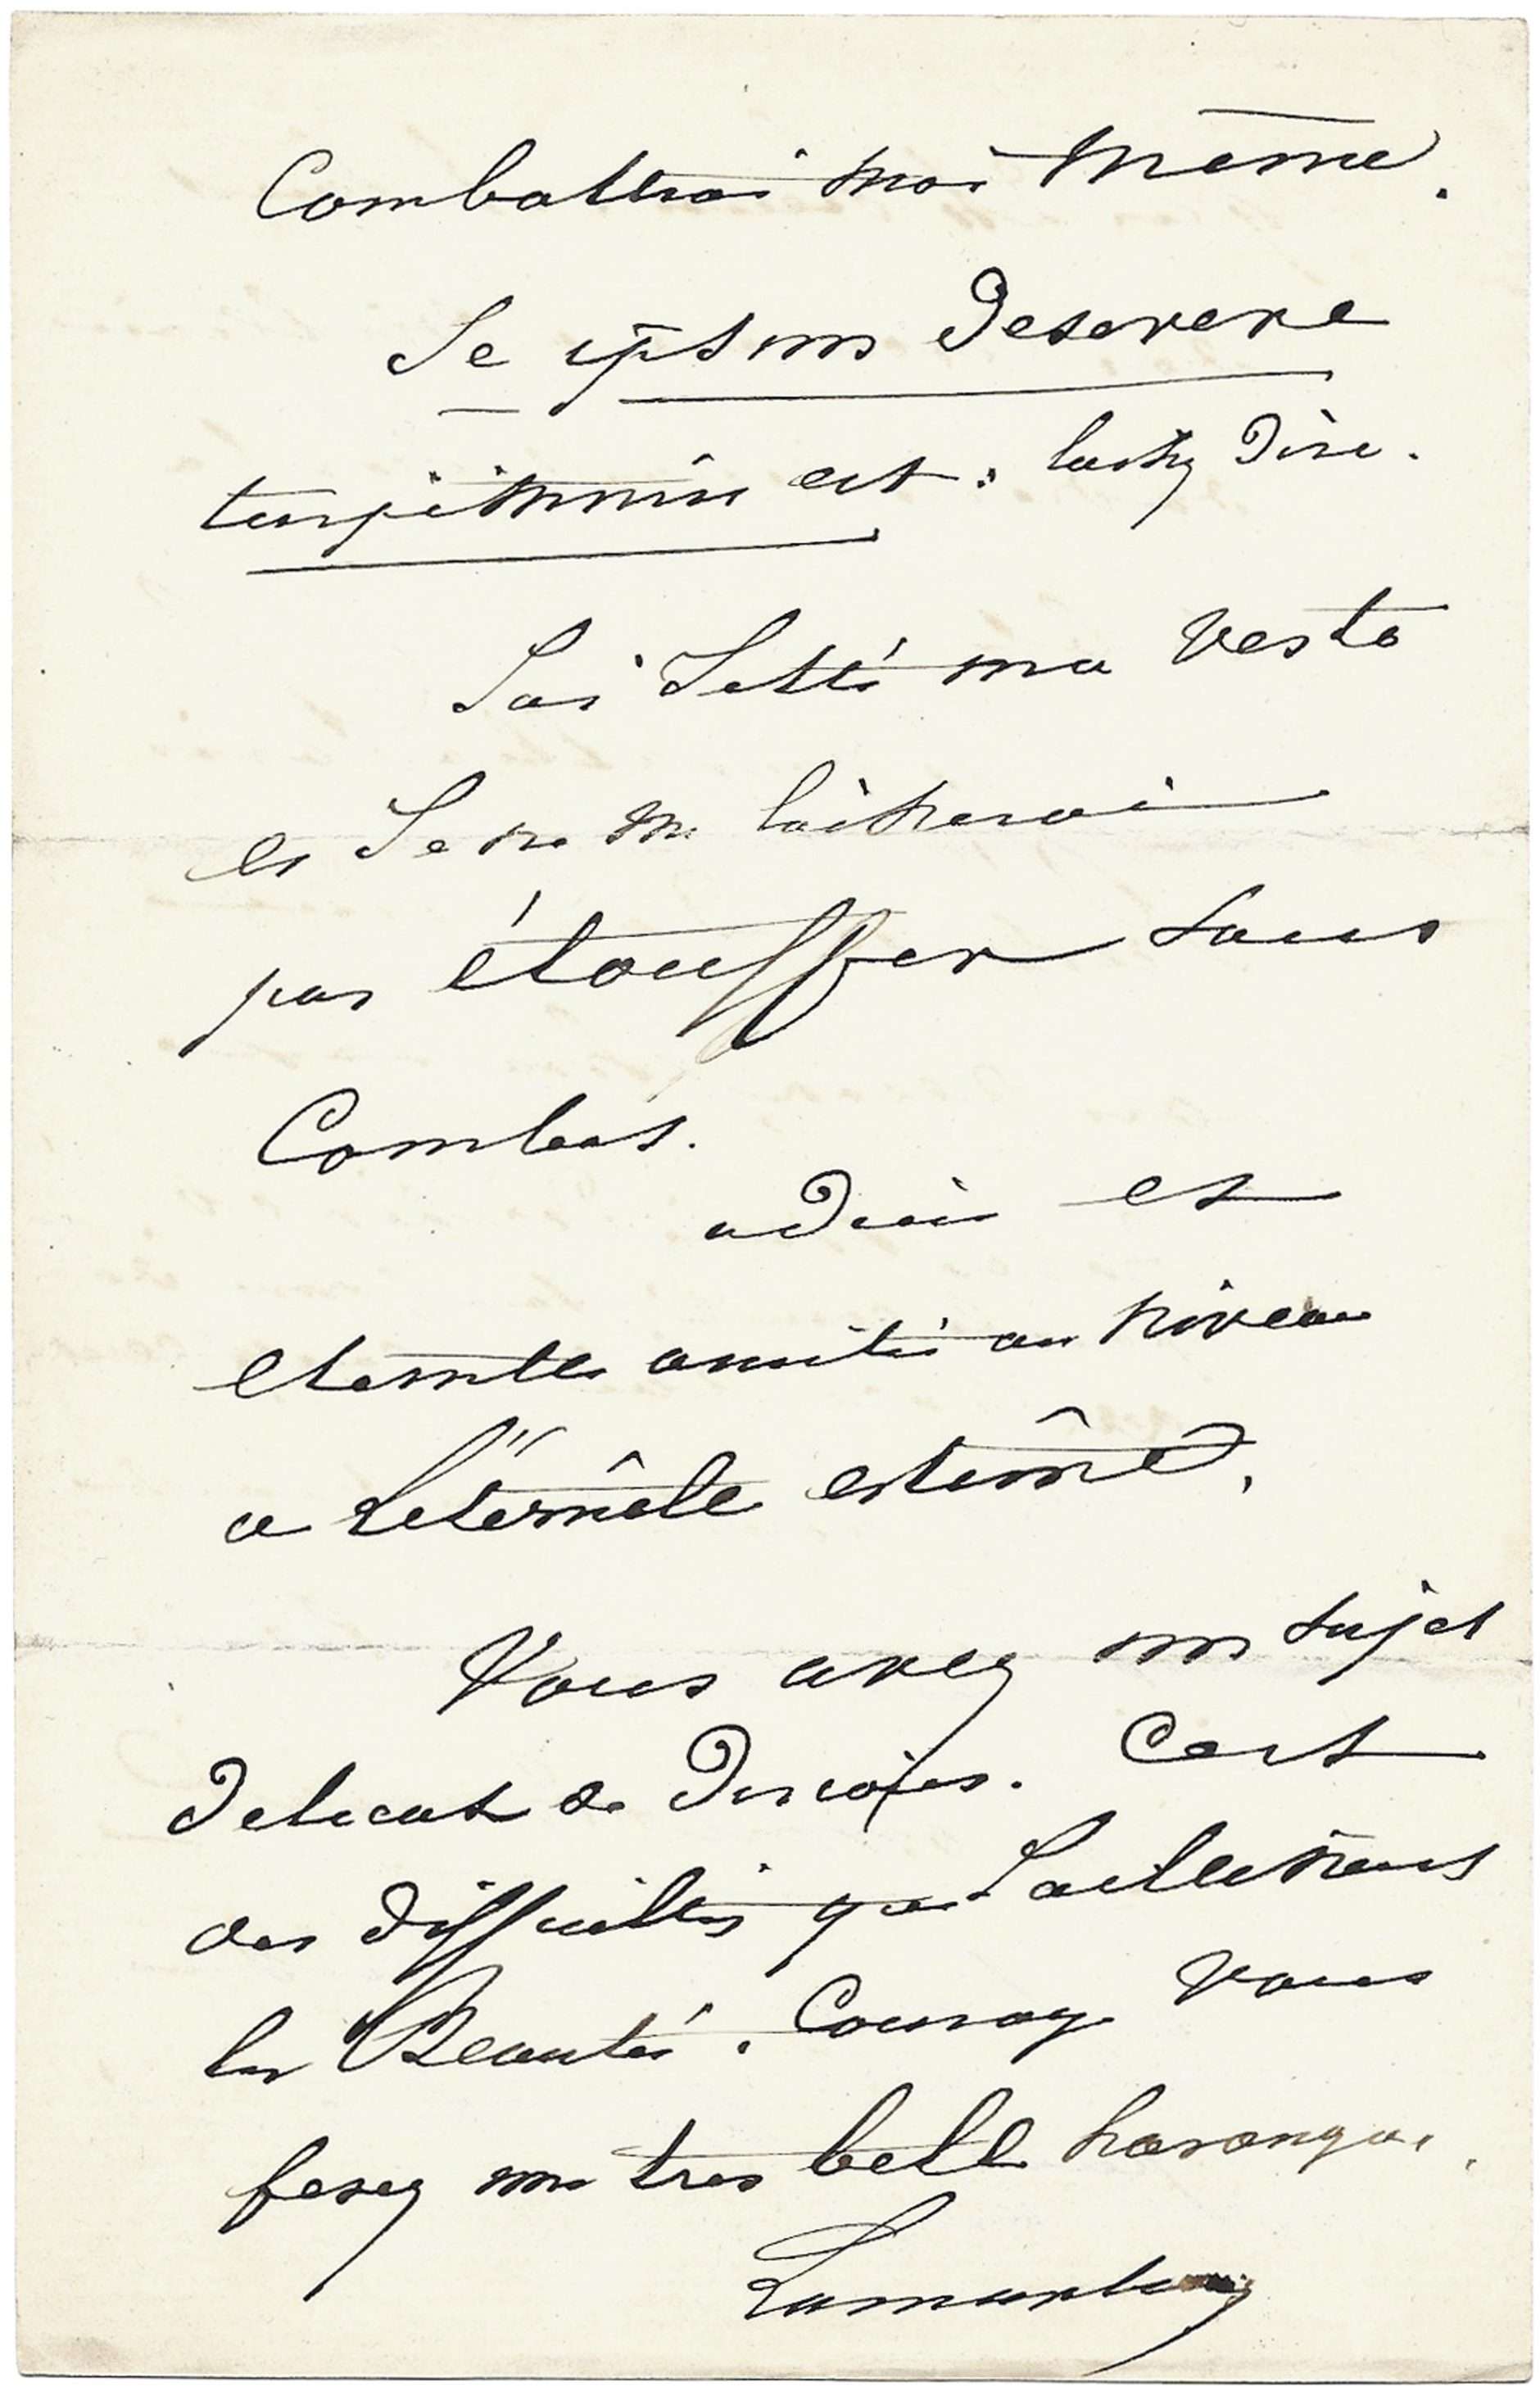 Combattrai moi même.
Se ipsum Deserere
turpissimum est :
J'ai Jetté ma veste
et Je ne me laisserai
pas étouffer sans
Combat.
adieu et
eternelle amitié au niveau
a L'éternêlle estime.
Vous avez un sujet
Delicat de Discours. C'est
des difficultés que
la Beauté. Courage Vous
ferez une tres belle harangue.
Lamartine